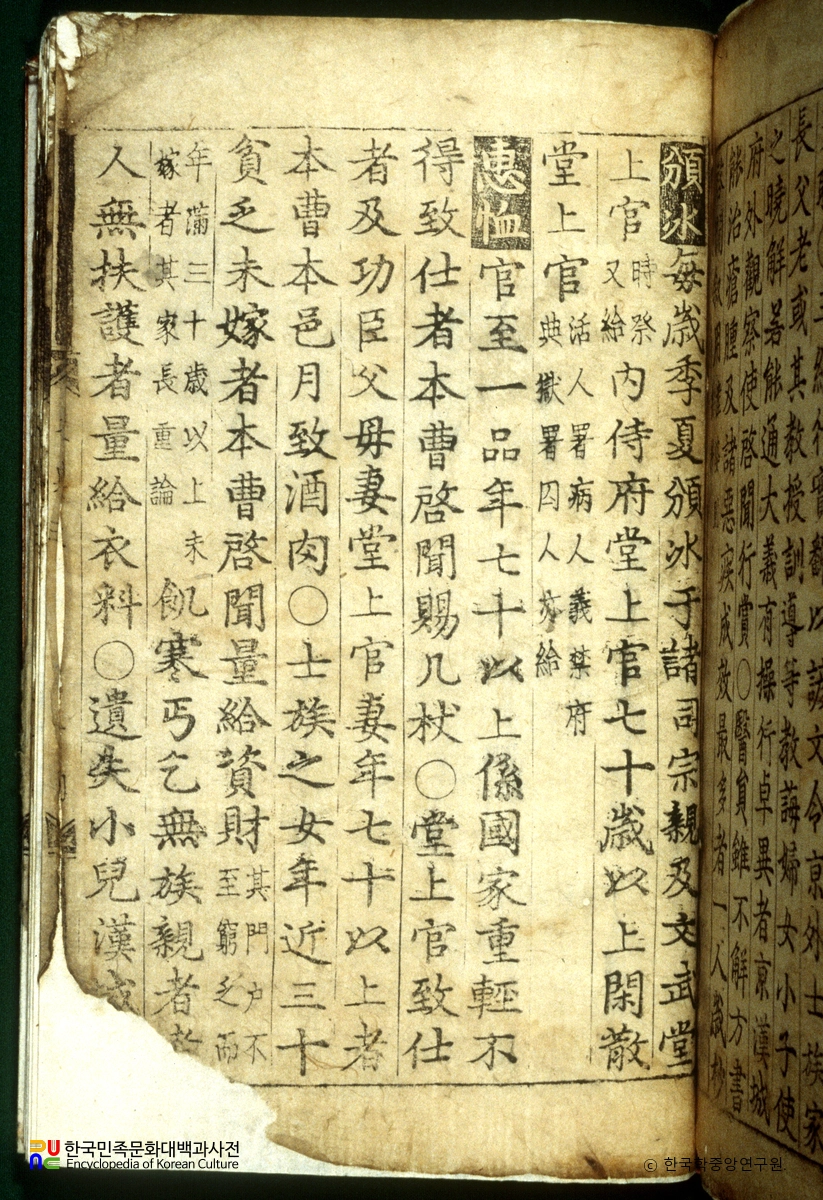 三綱行實飜以諺文令京外士族家
長父老或其教授訓導等教誨婦女小子使
之曉解若能通大義有操行卓異者京漢城
府外觀察使啓聞行賞○醫員雖不解方書
能治瘡腫及諸惡疾成效最多者一人歲抄
頒冰每歲季夏頒冰于諸司宗親及文武堂
上官時祭又給內侍府堂上官七十歲以上閑散
堂上官活人署病人義禁府典獄署囚人亦給
惠恤官至一品年七十以上係國家重輕不
得致仕者本曹啓聞賜几杖○堂上官致仕
者及功臣父母妻堂上官妻年七十以上者
本曹本邑月致酒肉○士族之女年近三十
貧乏未嫁者本曹啓聞量給資財其門戶不至窮乏而
年滿三十歲以上未嫁者其家長重論飢寒丐乞無族親者
人無扶護者量給衣料○遺失小兒漢城
한국민족문화대백과사전
Encyclopedia of Korean Culture
© 한국학중앙연구원